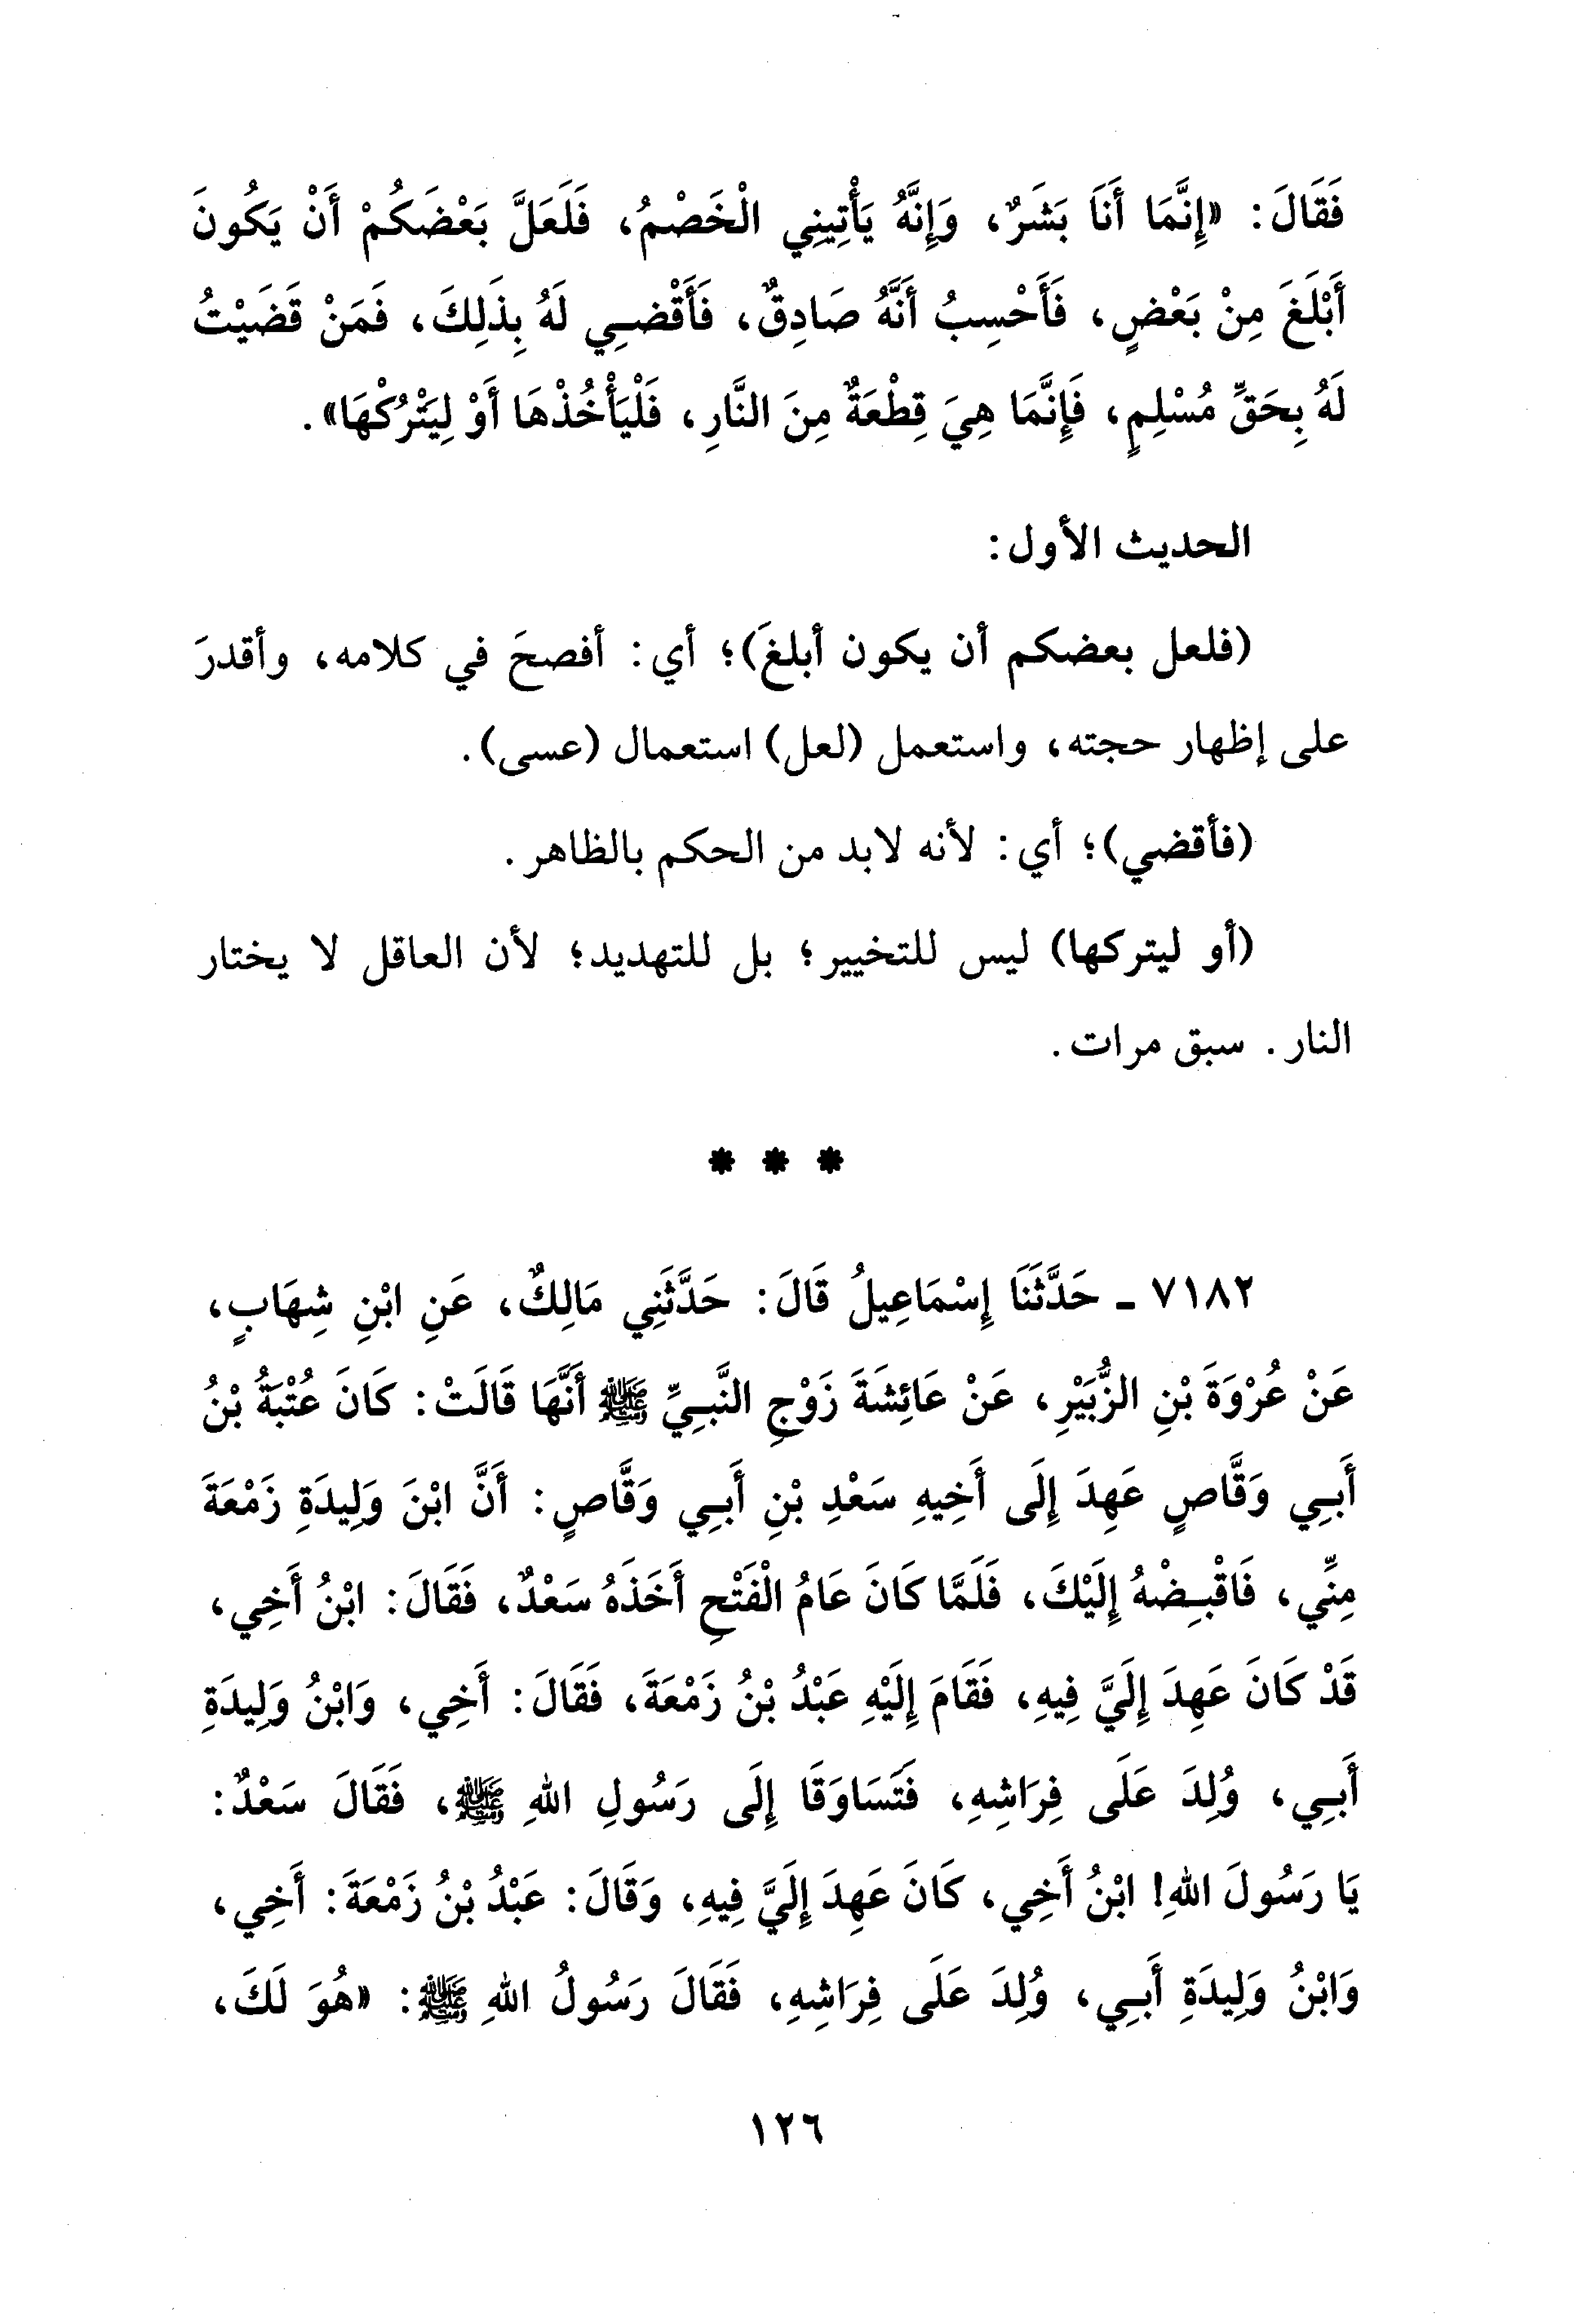 فَقَالَ: «إِنَّمَا أَنَا بَشَرٌ، وَإِنَّهُ يَأْتِينِي الْخَصْمُ، فَلَعَلَّ بَعْضَكُمْ أَنْ يَكُونَ
أَبْلَغَ مِنْ بَعْضٍ، فَأَحْسِبُ أَنَّهُ صَادِقٌ، فَأَقْضِي لَهُ بِذَلِكَ، فَمَنْ قَضَيْتُ
لَهُ بِحَقِّ مُسْلِمٍ، فَإِنَّمَا هِيَ قِطْعَةٌ مِنَ النَّارِ، فَلْيَأْخُذْهَا أَوْ لِيَتْرُكْهَا».
الحديث الأول:
(فلعل بعضكم أن يكون أبلغَ)؛ أي: أفصحَ في كلامه، وأقدرَ
على إظهار حجته، واستعمل (لعل) استعمال (عسى).
(فأقضي)؛ أي: لأنه لابد من الحكم بالظاهر.
(أو ليتركها) ليس للتخيير؛ بل للتهديد؛ لأن العاقل لا يختار
النار. سبق مرات.
* * *
٧١٨٢ - حَدَّثَنَا إِسْمَاعِيلُ قَالَ: حَدَّثَنِي مَالِكٌ، عَنِ ابْنِ شِهَابٍ،
عَنْ عُرْوَةَ بْنِ الزُّبَيْرِ، عَنْ عَائِشَةَ زَوْجِ النَّبِيِّ ﷺ أَنَّهَا قَالَتْ: كَانَ عُتْبَةُ بْنُ
أَبِي وَقَّاصٍ عَهِدَ إِلَى أَخِيهِ سَعْدِ بْنِ أَبِي وَقَّاصٍ: أَنَّ ابْنَ وَلِيدَةِ زَمْعَةَ
مِنِّي، فَاقْبِضْهُ إِلَيْكَ، فَلَمَّا كَانَ عَامُ الْفَتْحِ أَخَذَهُ سَعْدٌ، فَقَالَ: ابْنُ أَخِي،
قَدْ كَانَ عَهِدَ إِلَيَّ فِيهِ، فَقَامَ إِلَيْهِ عَبْدُ بْنُ زَمْعَةَ، فَقَالَ: أَخِي، وَابْنُ وَلِيدَةِ
أَبِي، وُلِدَ عَلَى فِرَاشِهِ، فَتَسَاوَقَا إِلَى رَسُولِ اللهِ ﷺ، فَقَالَ سَعْدٌ:
يَا رَسُولَ اللهِ! ابْنُ أَخِي، كَانَ عَهِدَ إِلَيَّ فِيهِ، وَقَالَ: عَبْدُ بْنُ زَمْعَةَ: أَخِي،
وَابْنُ وَلِيدَةِ أَبِي، وُلِدَ عَلَى فِرَاشِهِ، فَقَالَ رَسُولُ اللهِ ﷺ: «هُوَ لَكَ،
١٢٦